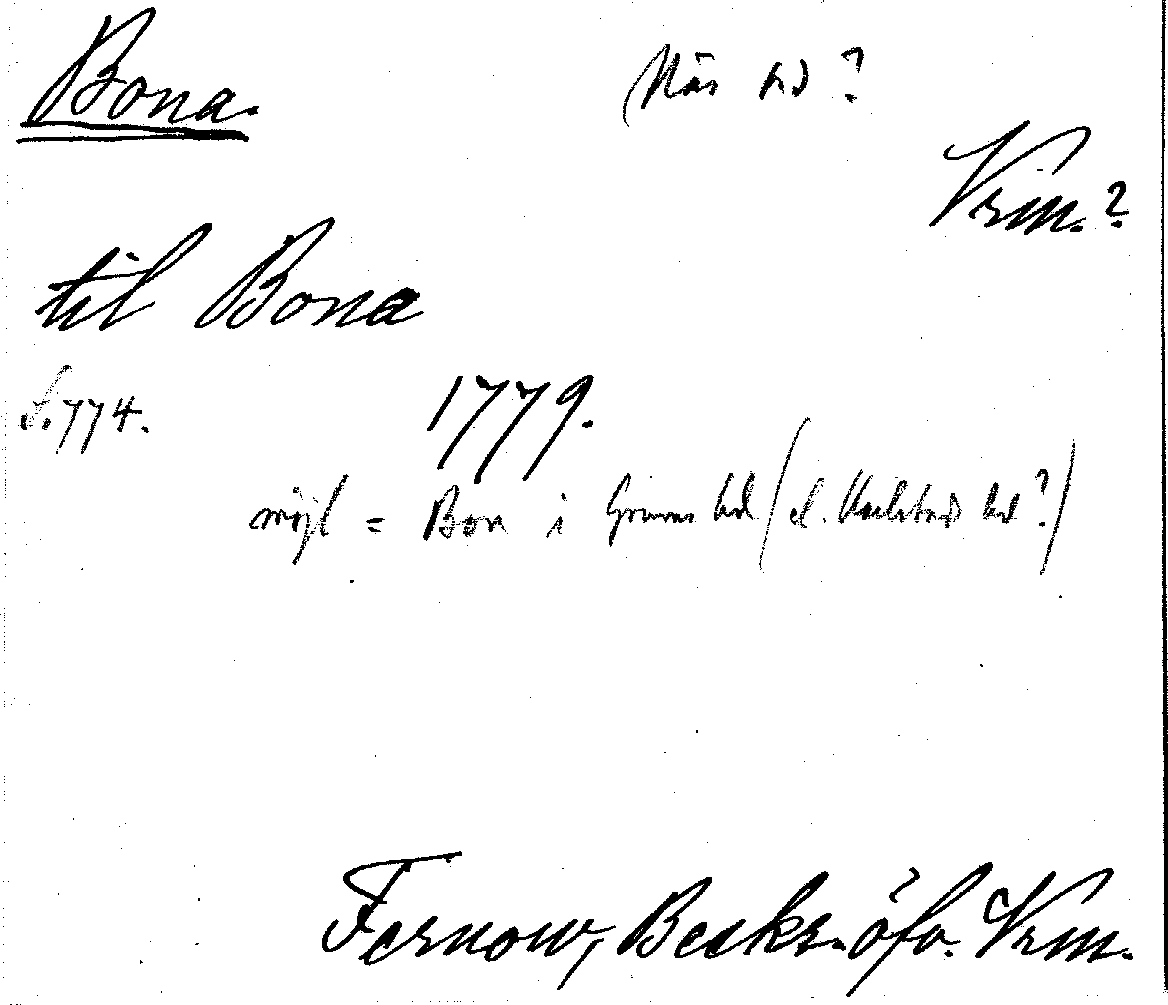 Bona.
Näs hd ?
Vrm. ?
til Bona
S. 774.
1779.
möjl = Bon i Grums hd (el. Karlstad hd ?)
Fernow, Beskr. öfv. Vrm.